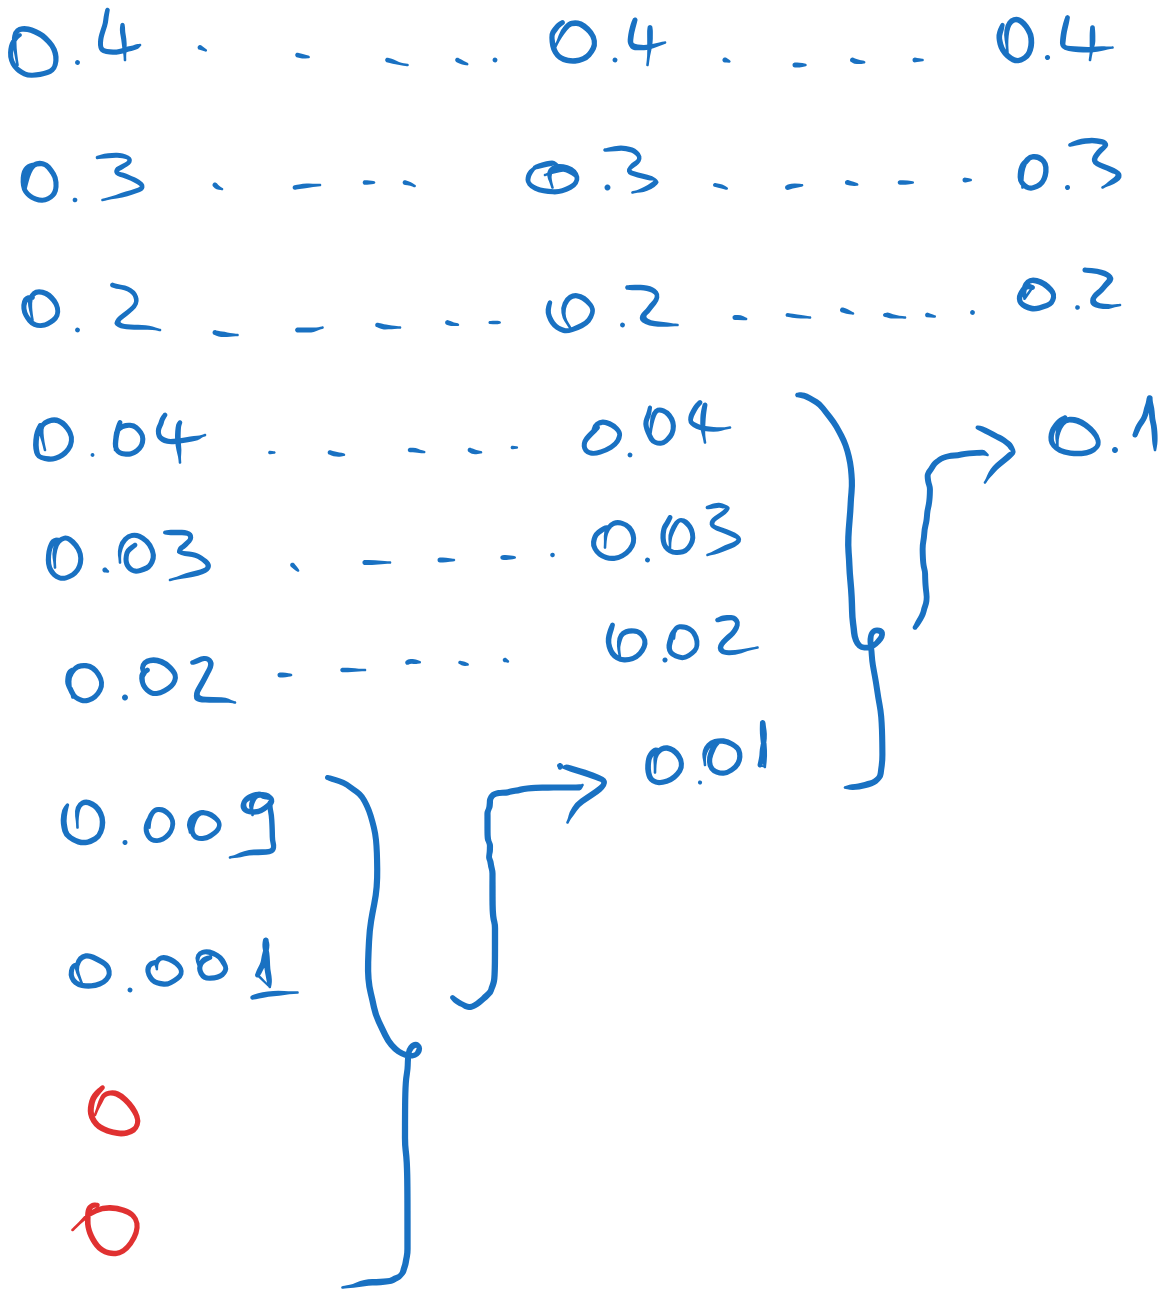 0.4 . - - - . 0.4 . - - - 0.4
0.3 . - - - 0.3 - - - - . 0.3
0.2 - - - - - 0.2 - - - - - . 0.2
0.04 - - - - . 0.04 0.1
0.03 . - - - . 0.03
0.02 - - - - . 0.02
0.01
0.009
0.001
0
0